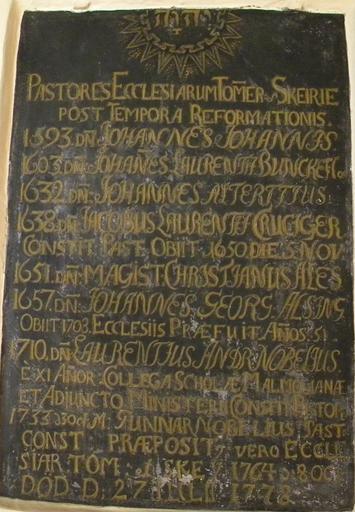 PASTORES ECCLESIARUM TOM̄ER & SKEIRIE
POST TEMPORA REFORMATIONIS.
1593. DN̄: IOHANNES IOHANNIS
1603. DN̄: IOHAN̄ES LAURENTII
1632. DN̄: IOHANNES
1638. DN̄: IACOBUS LAURENTII CRUCIGER
CONSTIT. PAST. OBIIT. 1650. DIE. 5. NOV
1651. DN̄: MAGIST. CHRISTIANUS ALES
1657. DN̄: IOHANNES GEORG: ALSING,
OBIIT 1709. ECCLESIIS PRÆFUIT AN̄OS. 51
1710. DN̄: LAURENTIUS ANDR: NOBELIUS
EX I AN̄OR: COLLEGA SCHOLÆ MALMOGIANÆ
ET ADIUNCTO MINISTERII CONSTIT: PASTOR.
1733 30 M: GUNNAR NOBELIUS PAST.
CONST PRÆPOSIT, VERO ECCLE
SIAR. TOM: SKE 1764
DÖD. D: 27 1778